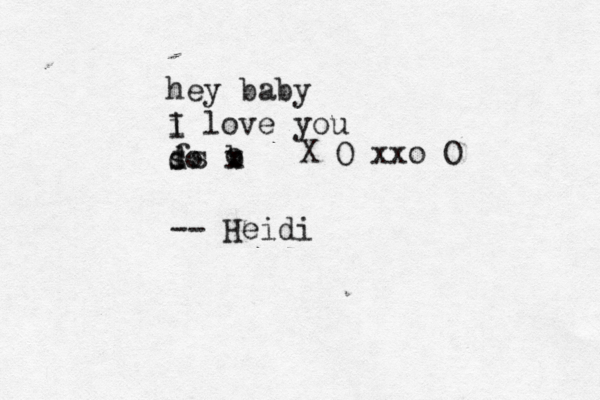 hey baby
I love you
X O xxo O
-- Heidi